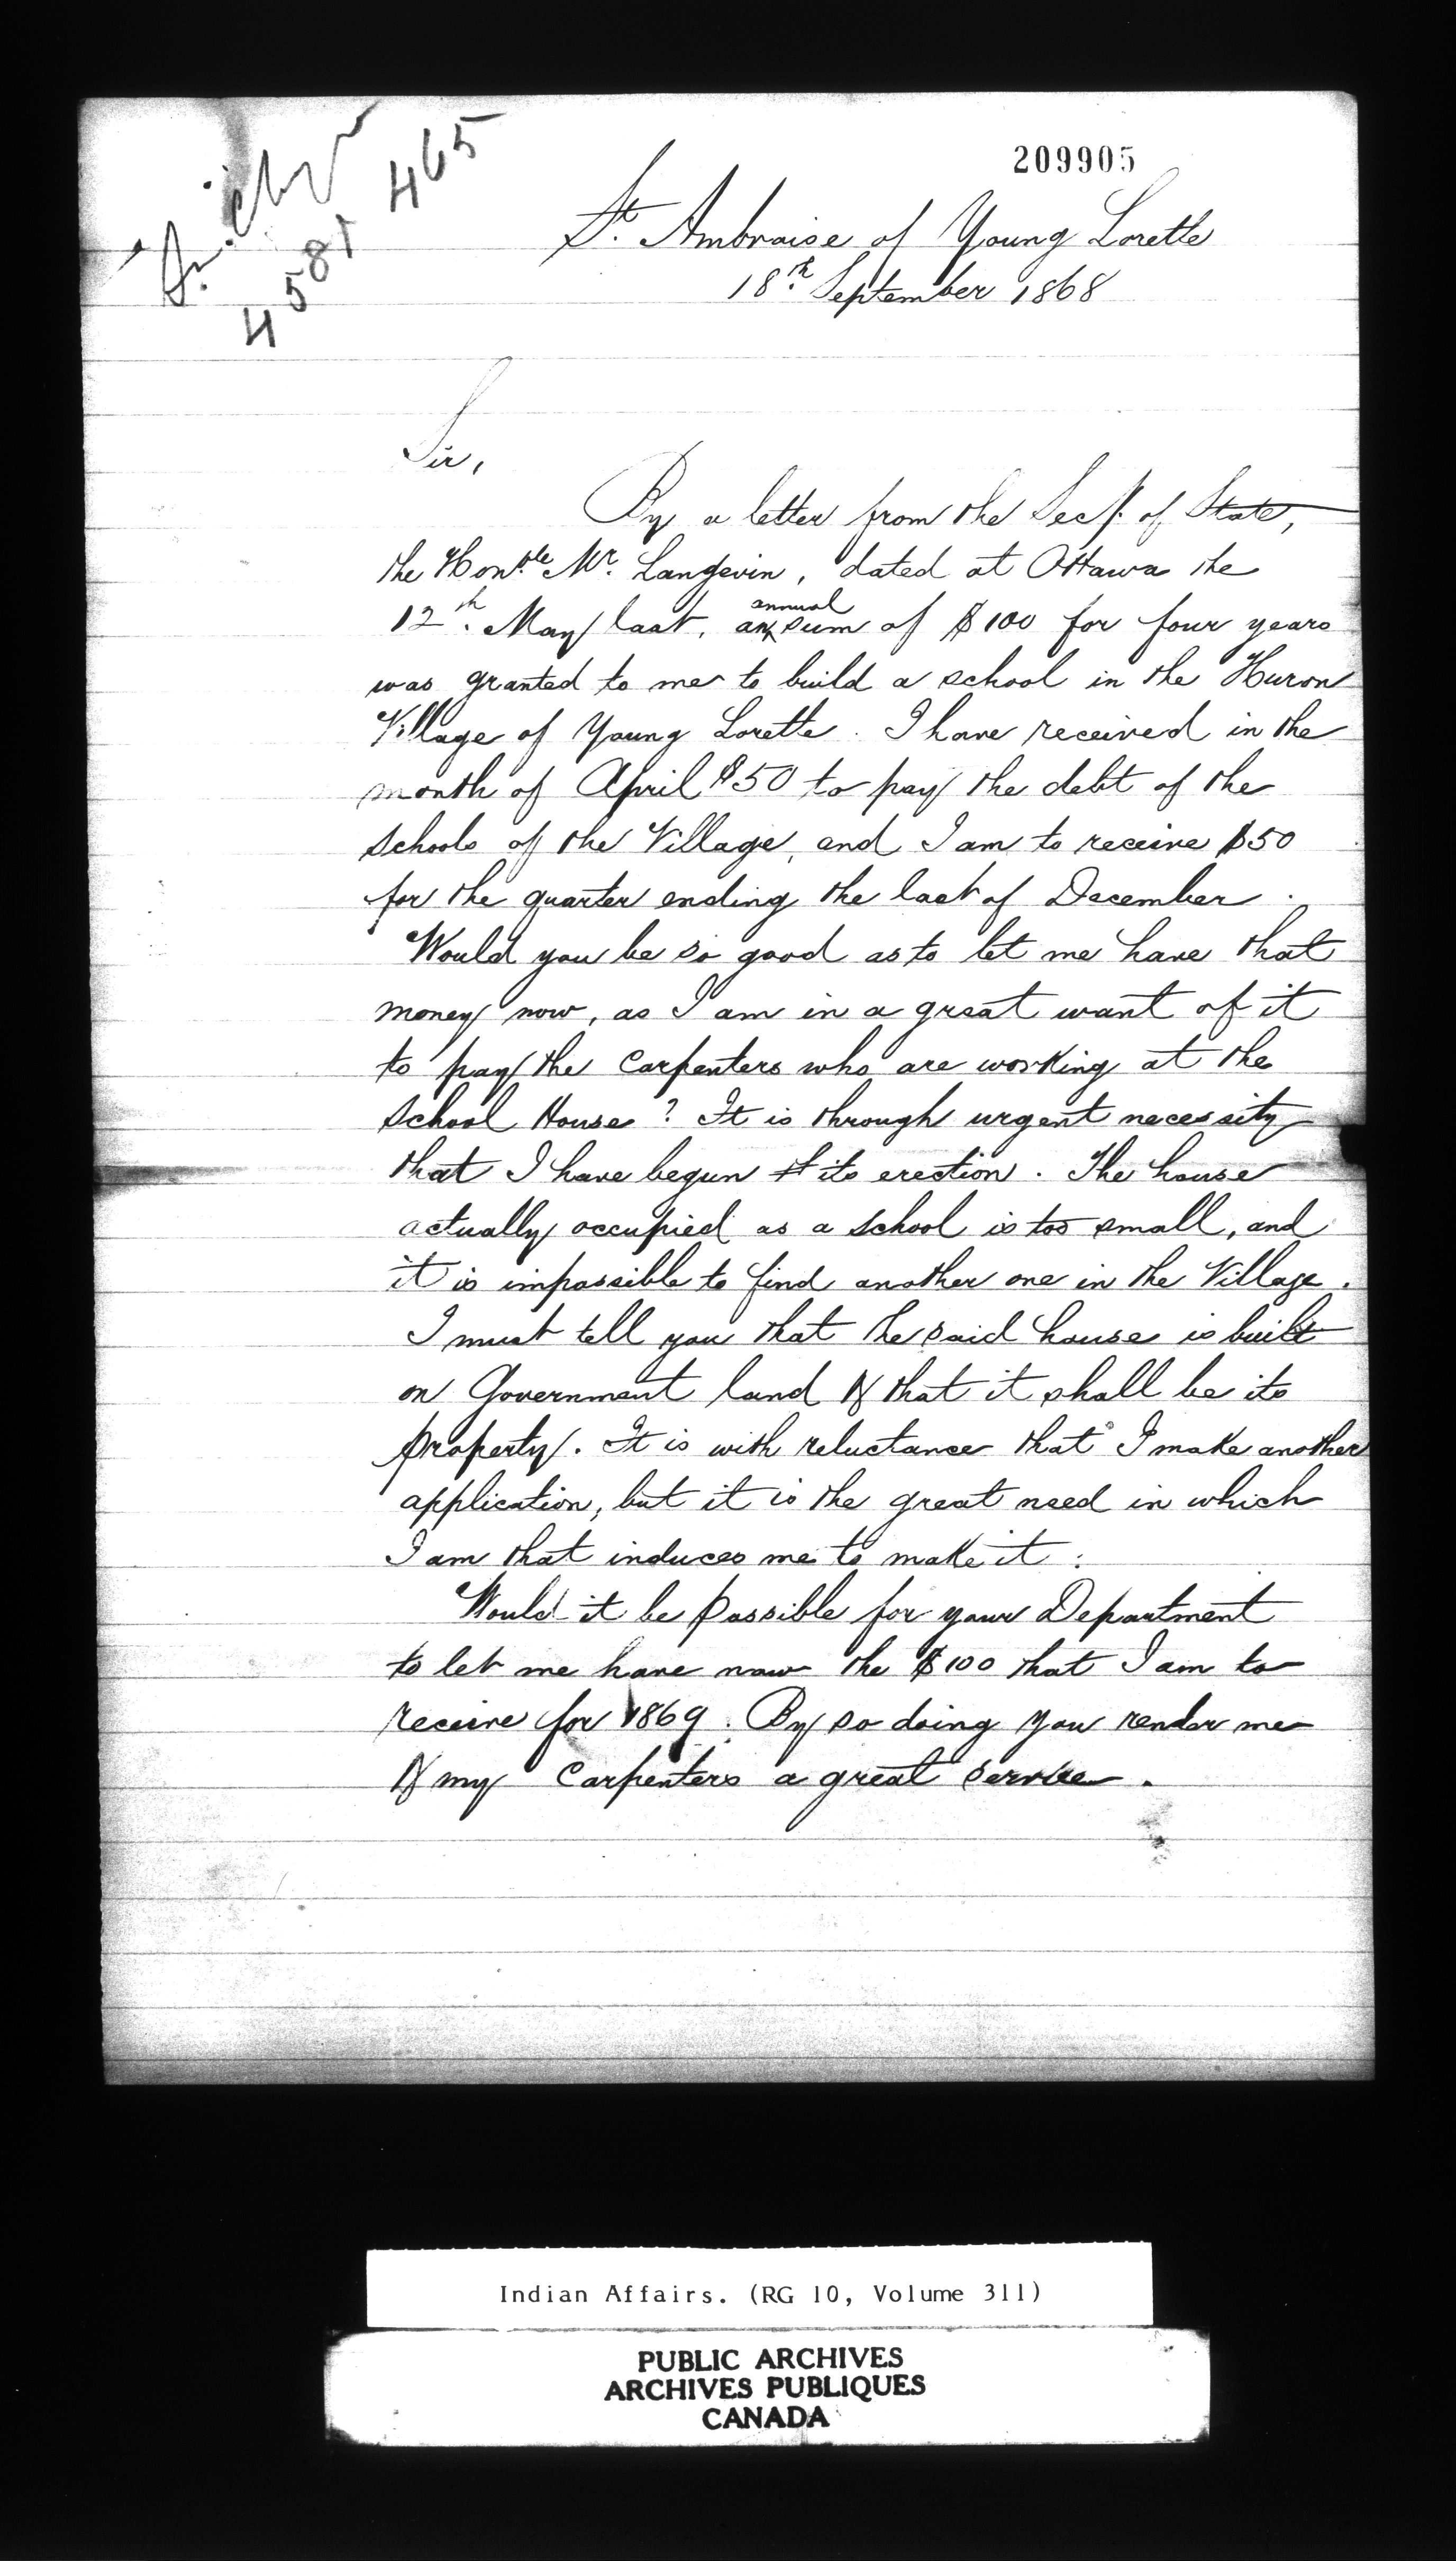 209905
465
4581
St. Ambroise of Young Lorette
18th September 1868
Sir,
By a letter from the Secy. of State,
the Honble Mr. Langevin, dated at Ottawa the
12th. May last, an annual sum of $100 for four years
was granted to me to build a school in the Huron
Village of Young Lorette. I have received in the
month of April $50 to pay the debt of the
schools of the Village, and I am to receive $50
for the quarter ending the last of December.
Would you be so good as to let me have that
money now, as I am in a great want of it
to pay the Carpenters who are working at the
School House? It is through urgent necessity
that I have begun its erection. The house
actually occupied as a school is too small, and
it is impossible to find another one in the Village.
I must tell you that the said house is built
on Government land & that it shall be its
property. It is with reluctance that I make another
application, but it is the great need in which
I am that induces me to make it:
Would it be possible for your Department
to let me have now the $100 that I am to
receive for 1869. By so doing you render me
& my Carpenters a great service.
Indian Affairs. (RG 10, Volume 311)
PUBLIC ARCHIVES
ARCHIVES PUBLIQUES
CANADA